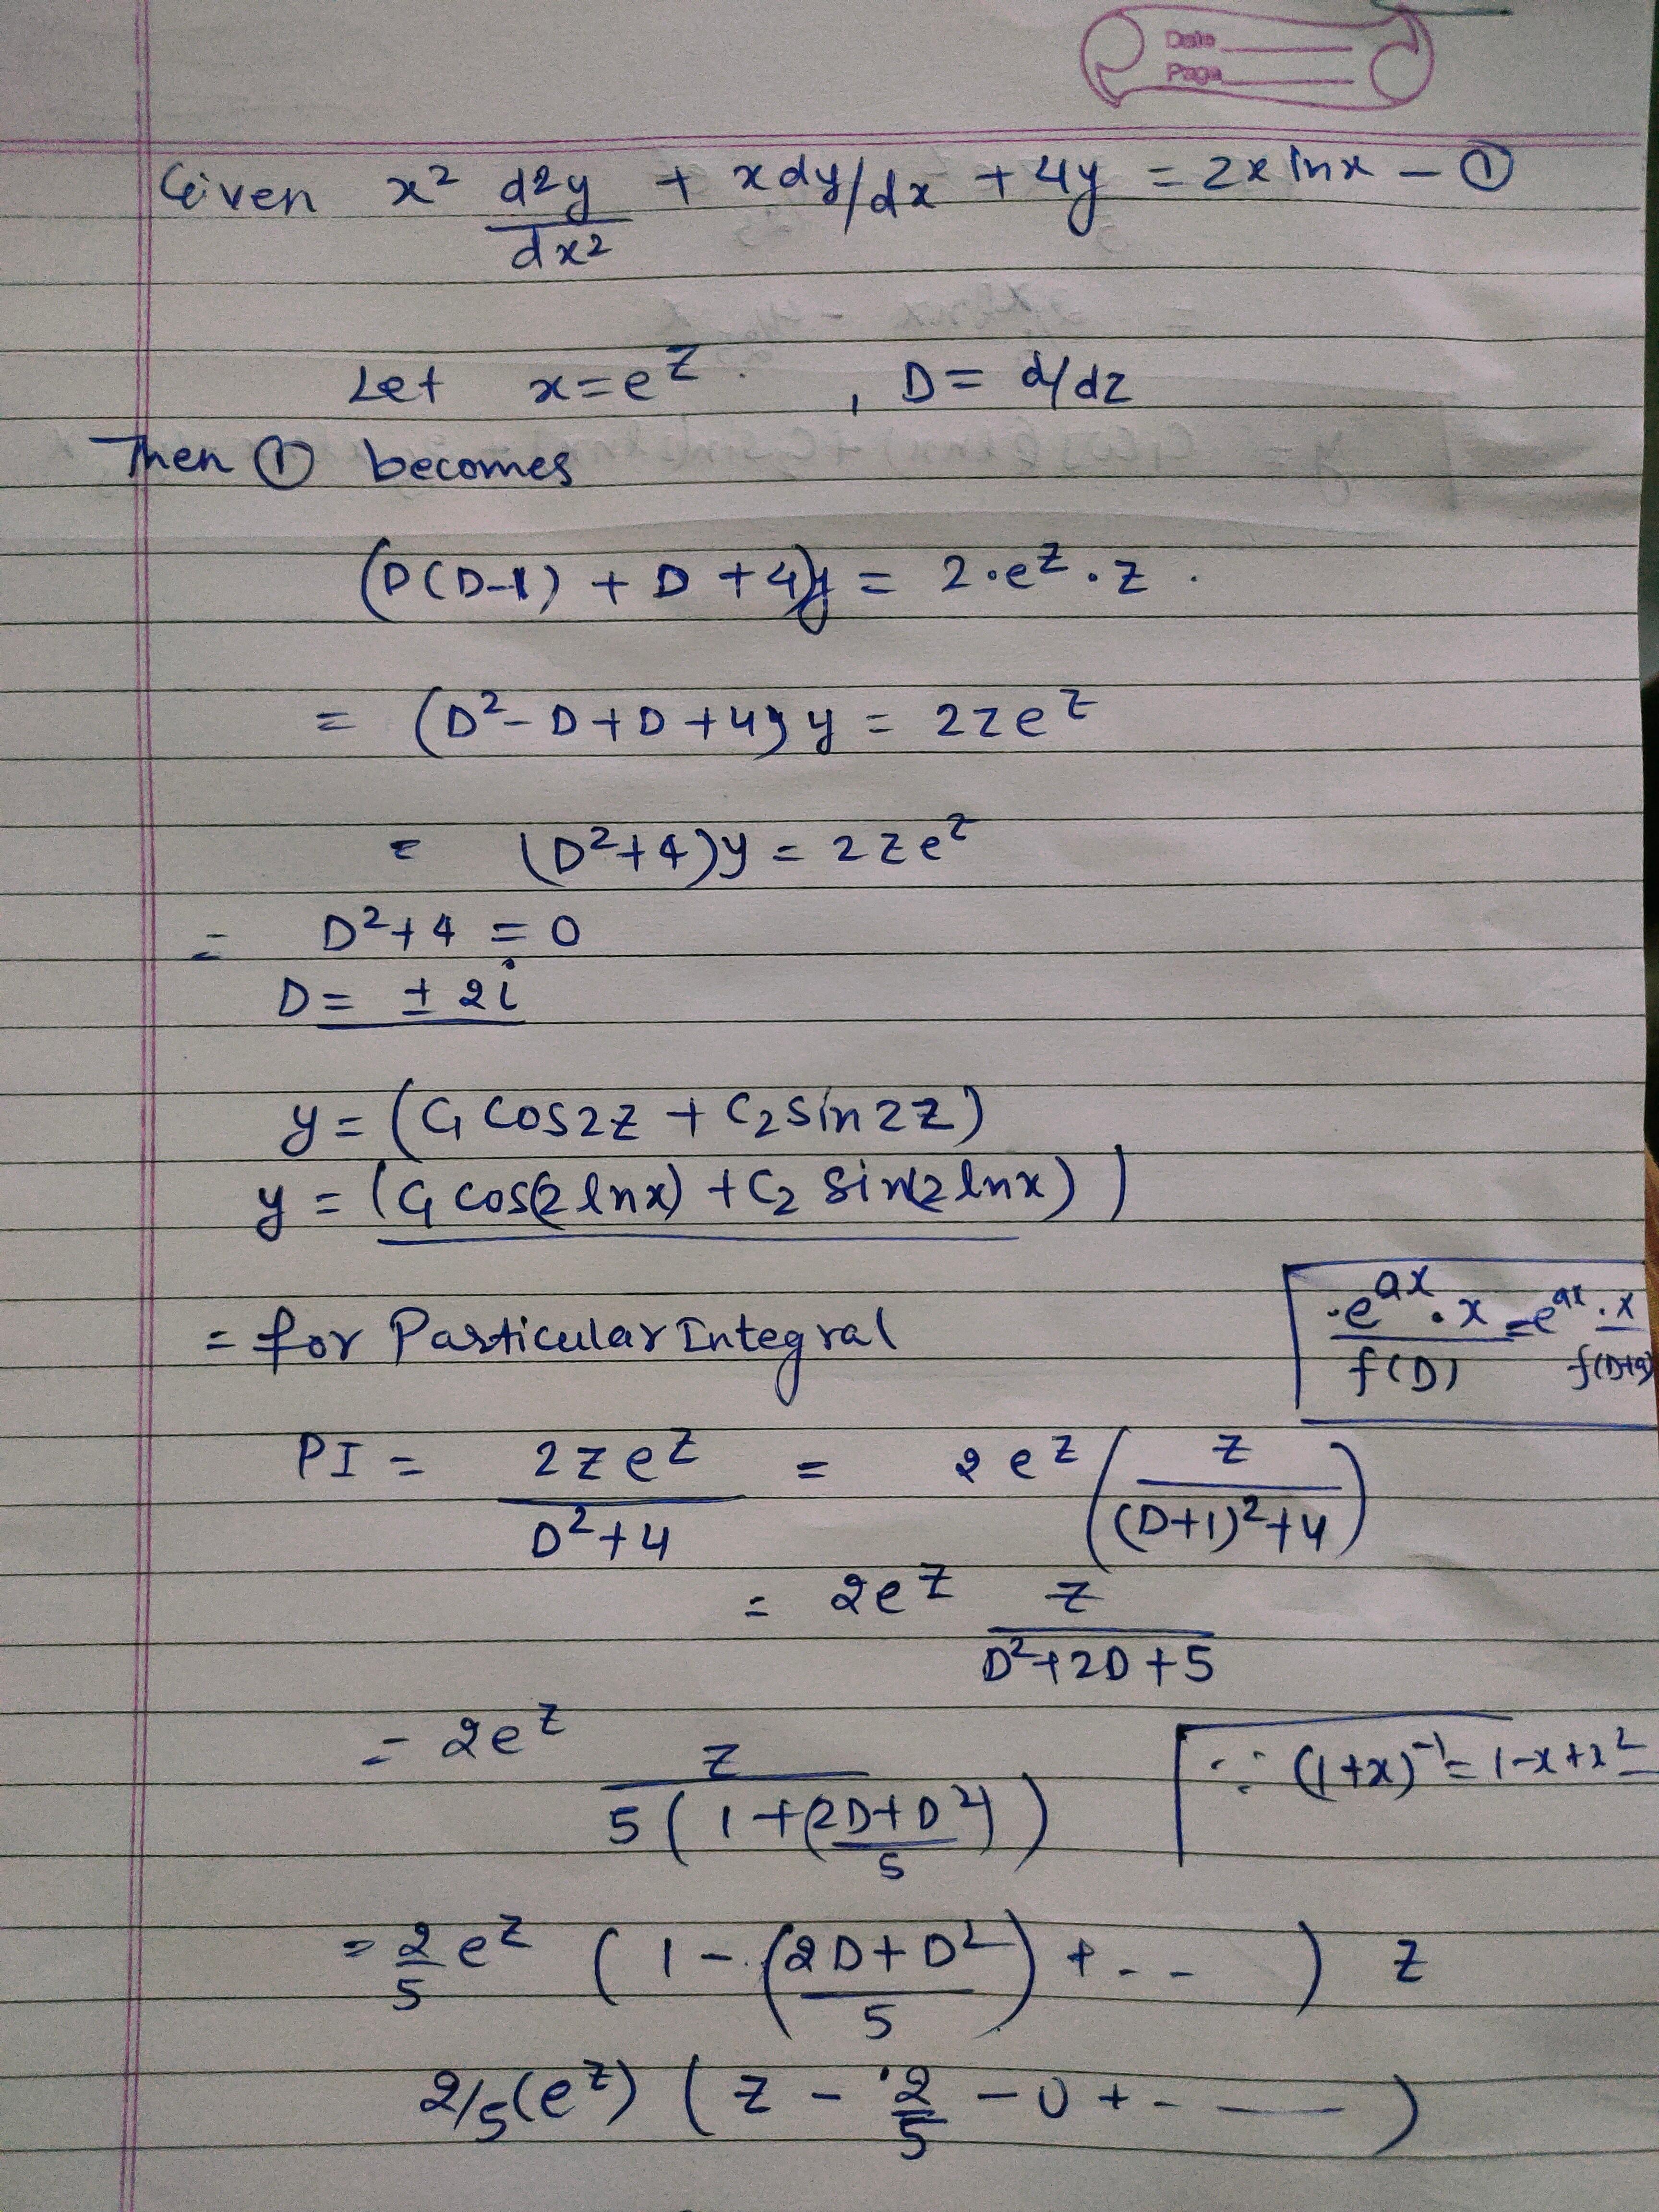 Date
Page
Given x² d²y/dx² + x dy/dx + 4y = 2x lnx – ①
Let x = e^z , D = d/dz
Then ① becomes
(D(D-1) + D + 4)y = 2·e^z·z.
= (D² - D + D + 4)y = 2ze^z
= (D²+4)y = 2ze^z
= D²+4 = 0
D = ± 2i
y = (C₁ cos2z + C₂ sin2z)
y = (C₁ cos(2 lnx) + C₂ sin(2 lnx))
= for Particular Integral
·e^ax · x / f(D) = e^ax · x / f(D+a)
PI = 2ze^z / D²+4 = 2e^z ( z / (D+1)²+4 )
= 2e^z z / D²+2D+5
= 2e^z z / 5(1+(2D+D²)/5)
∵ (1+x)⁻¹ = 1-x+x² –
= 2/5 e^z ( 1 - (2D+D²/5) + - - ) z
2/5(e^z) ( z - 2/5 - 0 + - — )